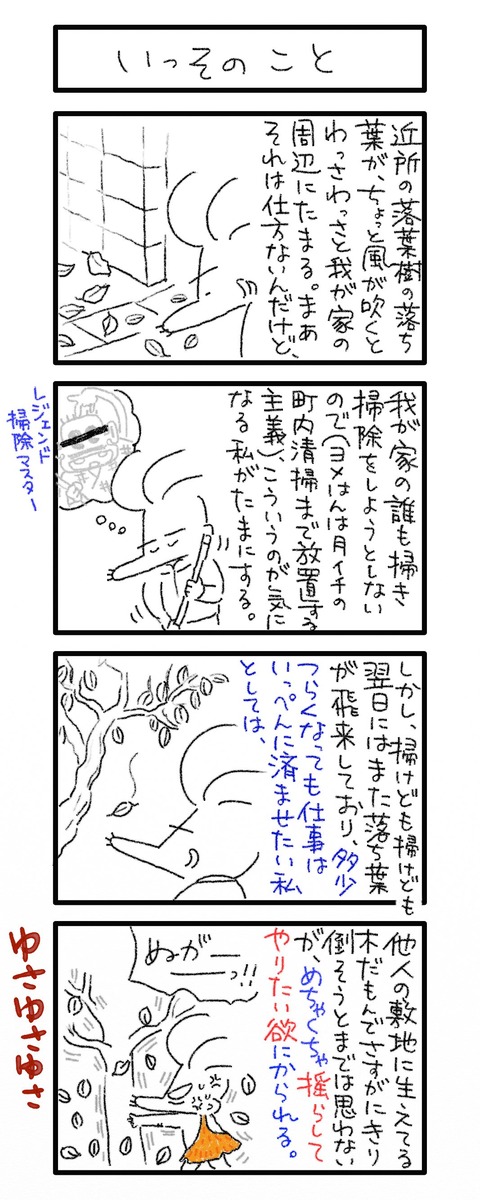 いっそのこと
近所の落葉樹の落ち
葉が、ちょっと風が吹くと
わっさわっさと我が家の
周辺にたまる。まぁ
それは仕方ないんだけど、
我が家の誰も掃き
掃除をしようとしない
ので(ヨメはんは月イチの
町内清掃まで放置する
主義)、こういうのが気に
なる私がたまにする。
レジェンド
掃除マスター
しかし、掃けども掃けども
翌日にはまた落ち葉
が飛来しており、多少
つらくなっても仕事は
いっぺんに済ませたい私
としては、
他人の敷地に生えてる
木だもんでさすがにきり
倒そうとまでは思わない
が、めちゃくちゃ揺らして
やりたい欲にかられる。
ぬがーーっ!!
ゆさゆさゆさ